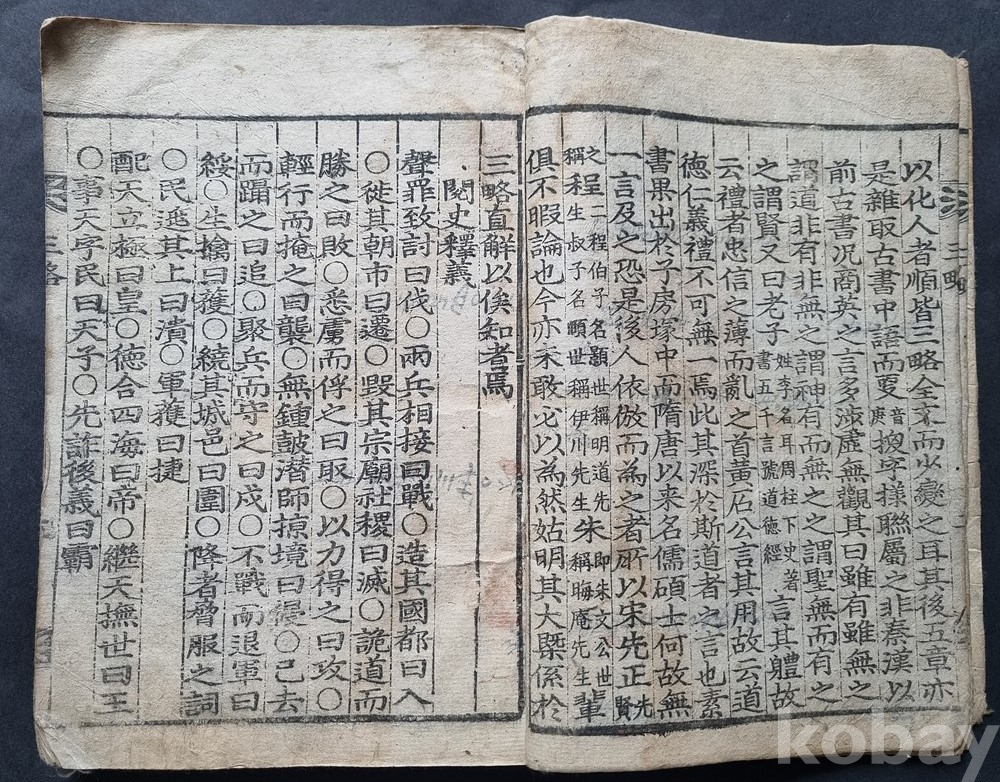 以化人者順皆三略全文而少變之耳其後五章亦
是雜取古書中語而更音庚換字樣聯屬之非秦漢以
前古書况商英之言多渉虛無觀其曰雖有雖無之
謂道非有非無之謂神有而無之之謂聖無而有之
之謂賢又曰老子姓李名耳周柱下史著書五千言號道德經言其體故
云禮者忠信之薄而亂之首黃石公言其用故云道
德仁義禮不可無一焉此其深於斯道者之言也素
書果出於子房塚中而隋唐以来名儒碩士何故無
一言及之恐是後人依倣而為之者所以宋先正先賢
之稱程二程伯子名顥世稱明道先生叔子名頤世稱伊川先生朱即朱文公世稱晦庵先生輩
俱不暇論也今亦未敢必以為然姑明其大槩係於
三略直解以俟知者焉
閱史釋義
聲罪致討曰伐○兩兵相接曰戰○造其國都曰入
○徙其朝市曰遷○毀其宗廟社稷曰滅○詭道而
勝之曰敗○悉虜而俘之曰取○以力得之曰攻○
輕行而掩之曰襲○無鍾鼓潜師掠境曰侵○已去
而躡之曰追○聚兵而守之曰戍○不戰而退軍曰
綏○生擒曰獲○繞其城邑曰圍○降者脅服之詞
○民逃其上曰潰○軍獲曰捷
配天立極曰皇○德合四海曰帝○繼天撫世曰王
○事天字民曰天子○先詐後義曰霸
三略
三略
kobay